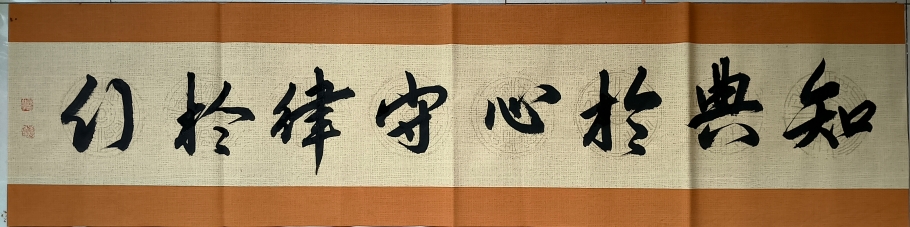 知典於心守律於行